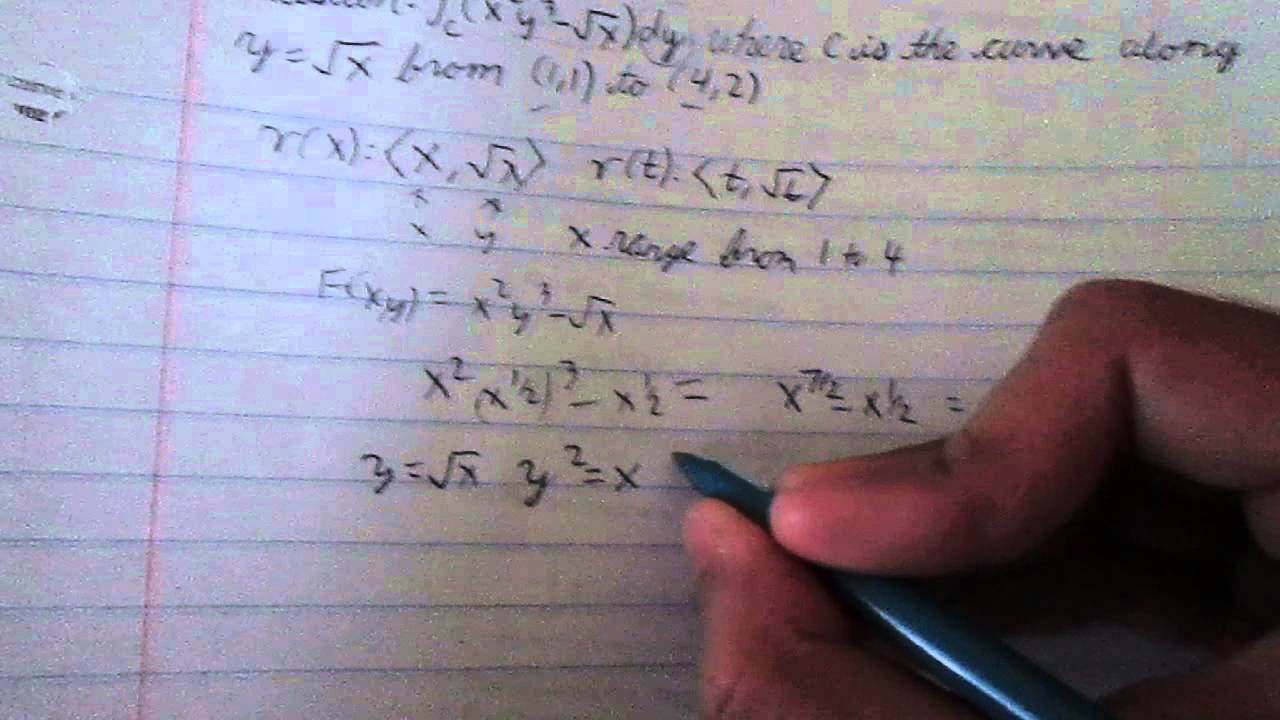 ∫_C (x²y³-√x)dy, where C is the curve along
y=√x from (1,1) to (4,2)
r(x)=⟨x,√x⟩ r(t)=⟨t,√t⟩
x y x range from 1 to 4
F(x,y)=x²y³-√x
x²(x^1/2)³-x^1/2= x^7/2-x^1/2=
y=√x y²=x